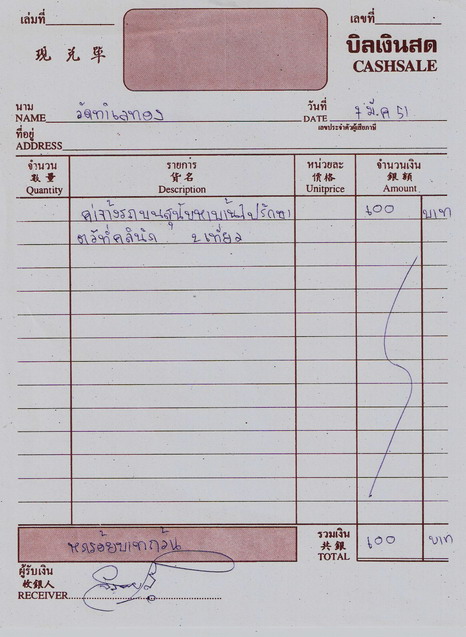 เล่มที่
เลขที่
現兑單
บิลเงินสด
CASHSALE
นาม
NAME
วันที่
DATE
7 มี.ค 51
ที่อยู่
ADDRESS
เลขประจำตัวผู้เสียภาษี
จำนวน รายการ หน่วยละ จำนวนเงิน
数量 貨名 價格 銀額
Quantity Description Unitprice Amount
ค่าจ้างรถขนสุนัข ไปรักษา 600 บาท
ตัวที่คลีนิค 2 เที่ยว
หกร้อยบาทถ้วน
รวมเงิน
共銀
TOTAL
600 บาท
ผู้รับเงิน
收銀人
RECEIVER